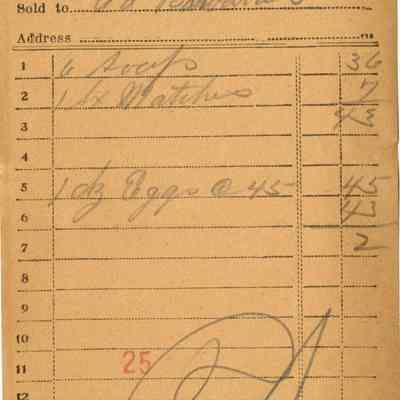 Sold to
Address
1 6 Soaps 36
2 1 bx Matches 7
3 43
4
5 1 dz Eggs @ 45 45
6 43
7 2
8
9
10
11 25
12